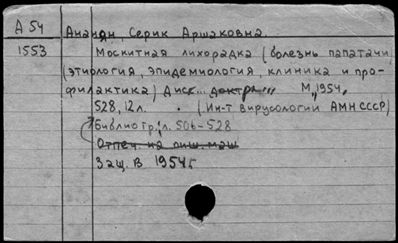 А 54 Ананян, Серик Аршаковна.
1553 Москитная лихорадка (болезнь папатачи)
(этиология, эпидемиология, клиника и про-
филактика) Дисс... доктра... М., 1954,
528, 12 л. (Ин-т вирусологии АМН СССР)
Библиогр.: л. 506-528
Отпеч. на пиш. маш
Защ. в 1954г